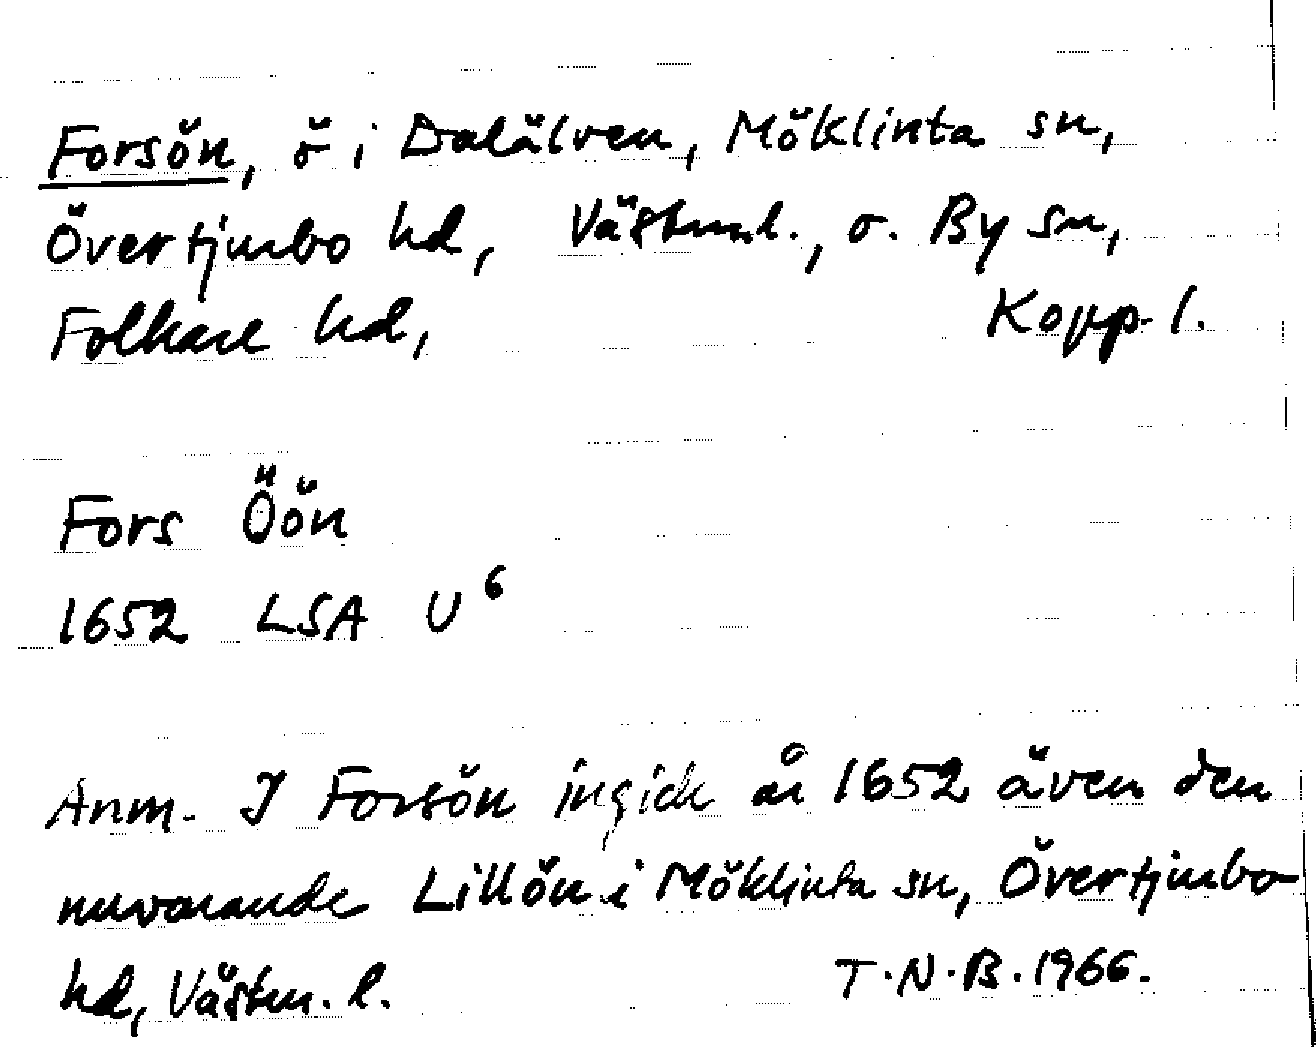 Forsön, ö i Dalälven, Möklinta sn,
Övertjurbo hd, Västm.l., o. By sn,
Folkare hd, Kopp.l.
Fors Öön
1652 LSA U⁶
Anm. I Forsön ingick år 1652 även den
nuvarande Lillön i Möklinta sn, Övertjurbo
hd, Västm. l. T.N.B. 1966.